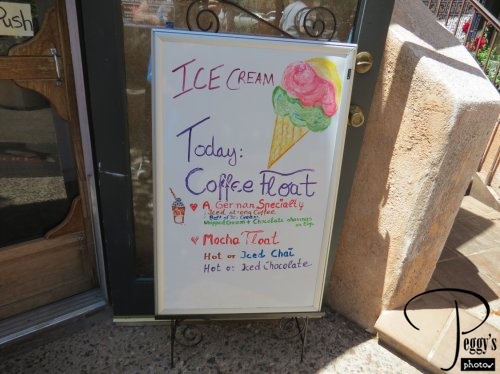 Push
ICE CREAM
Today:
Coffee Float
A German Specialty
Iced strong Coffee
Ball of Ice Cream
Whipped Cream + Chocolate shavings
on top
Mocha Float
Hot or Iced Chai
Hot or Iced Chocolate
Peggy's
photos